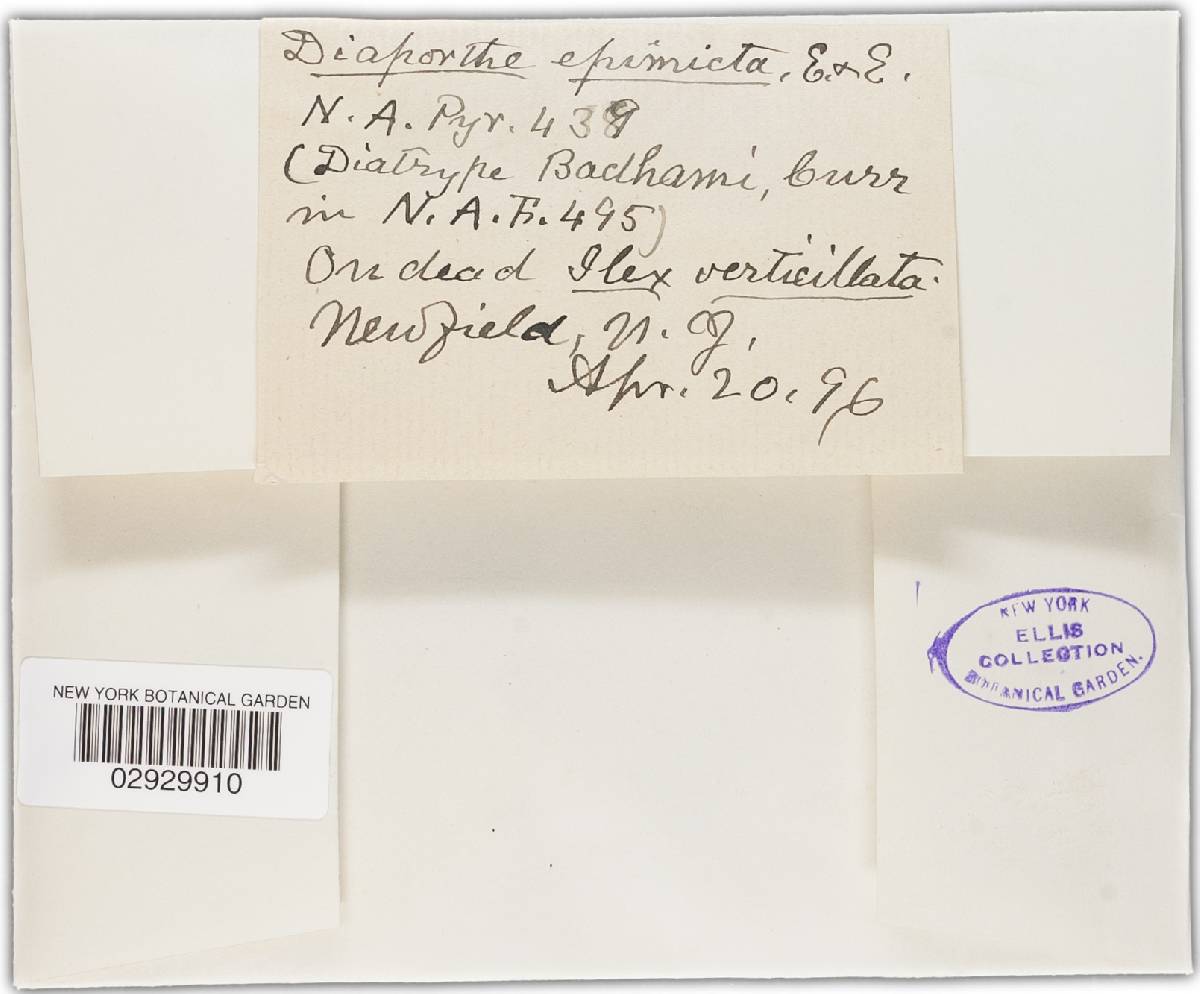 Diaporthe epimicta, E. & E.
N. A. Pyr. 439
(Diatrype Badhami, Curr
in N. A. F. 495)
On dead Ilex verticillata.
Newfield, N. J.
Apr. 20. 96
NEW YORK
ELLIS
COLLECTION
BOTANICAL GARDEN.
NEW YORK BOTANICAL GARDEN
02929910